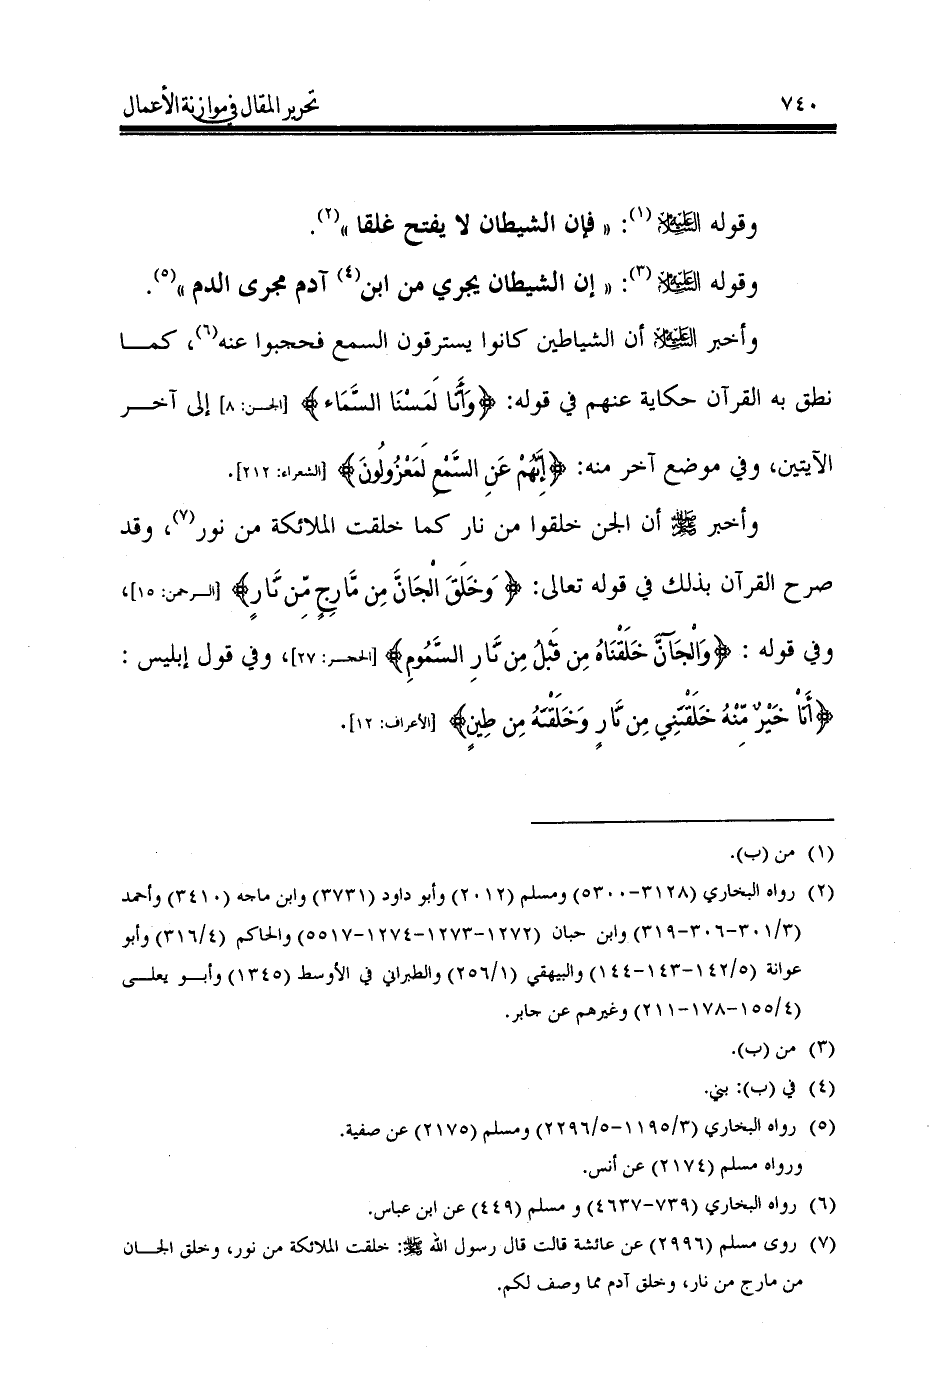 ٧٤٠ تحرير المقال في موازنة الأعمال
وقوله العَلِيْهِ السَّلام (١): « فإن الشيطان لا يفتح غلقا »(٢).
وقوله العَلِيْهِ السَّلام (٣): « إن الشيطان يجري من ابن(٤) آدم مجرى الدم »(٥).
وأخبر العَلِيْهِ السَّلام أن الشياطين كانوا يسترقون السمع فحجبوا عنه(٦)، كمـــا
نطق به القرآن حكاية عنهم في قوله: ﴿وَأَنَّا لَمَسْنَا السَّمَاء﴾ [الجـن: ٨] إلى آخـــر
الآيتين، وفي موضع آخر منه: ﴿إِنَّهُمْ عَنِ السَّمْعِ لَمَعْزُولُونَ﴾ [الشعراء: ٢١٢].
وأخبر ﷺ أن الجن خلقوا من نار كما خلقت الملائكة من نور(٧)، وقد
صرح القرآن بذلك في قوله تعالى: ﴿ وَخَلَقَ الْجَانَّ مِن مَّارِجٍ مِّن نَّارٍ﴾ [الـرحمن: ١٥]،
وفي قوله : ﴿وَالْجَآنَّ خَلَقْنَاهُ مِن قَبْلُ مِن نَّارِ السَّمُومِ﴾ [الحجـر: ٢٧]، وفي قول إبليس :
﴿أَنَاْ خَيْرٌ مِّنْهُ خَلَقْتَنِي مِن نَّارٍ وَخَلَقْتَهُ مِن طِينٍ﴾ [الأعراف: ١٢].
(١) من (ب).
(٢) رواه البخاري (٣١٢٨-٥٣٠٠) ومسلم (٢٠١٢) وأبو داود (٣٧٣١) وابن ماجه (٣٤١٠) وأحمد
(٣٠١/٣-٣٠٦-٣١٩) وابن حبان (١٢٧٢-١٢٧٣-١٢٧٤-٥٥١٧) والحاكم (٣١٦/٤) وأبو
عوانة (١٤٢/٥-١٤٣-١٤٤) والبيهقي (٢٥٦/١) والطبراني في الأوسط (١٣٤٥) وأبـــو يعلـــى
(١٥٥/٤-١٧٨-٢١١) وغيرهم عن جابر.
(٣) من (ب).
(٤) في (ب): بني.
(٥) رواه البخاري (١١٩٥/٣-٢٢٩٦/٥) ومسلم (٢١٧٥) عن صفية.
ورواه مسلم (٢١٧٤) عن أنس.
(٦) رواه البخاري (٧٣٩-٤٦٣٧) و مسلم (٤٤٩) عن ابن عباس.
(٧) روى مسلم (٢٩٩٦) عن عائشة قالت قال رسول الله ﷺ: خلقت الملائكة من نور، وخلق الجـــان
من مارج من نار، وخلق آدم مما وصف لكم.